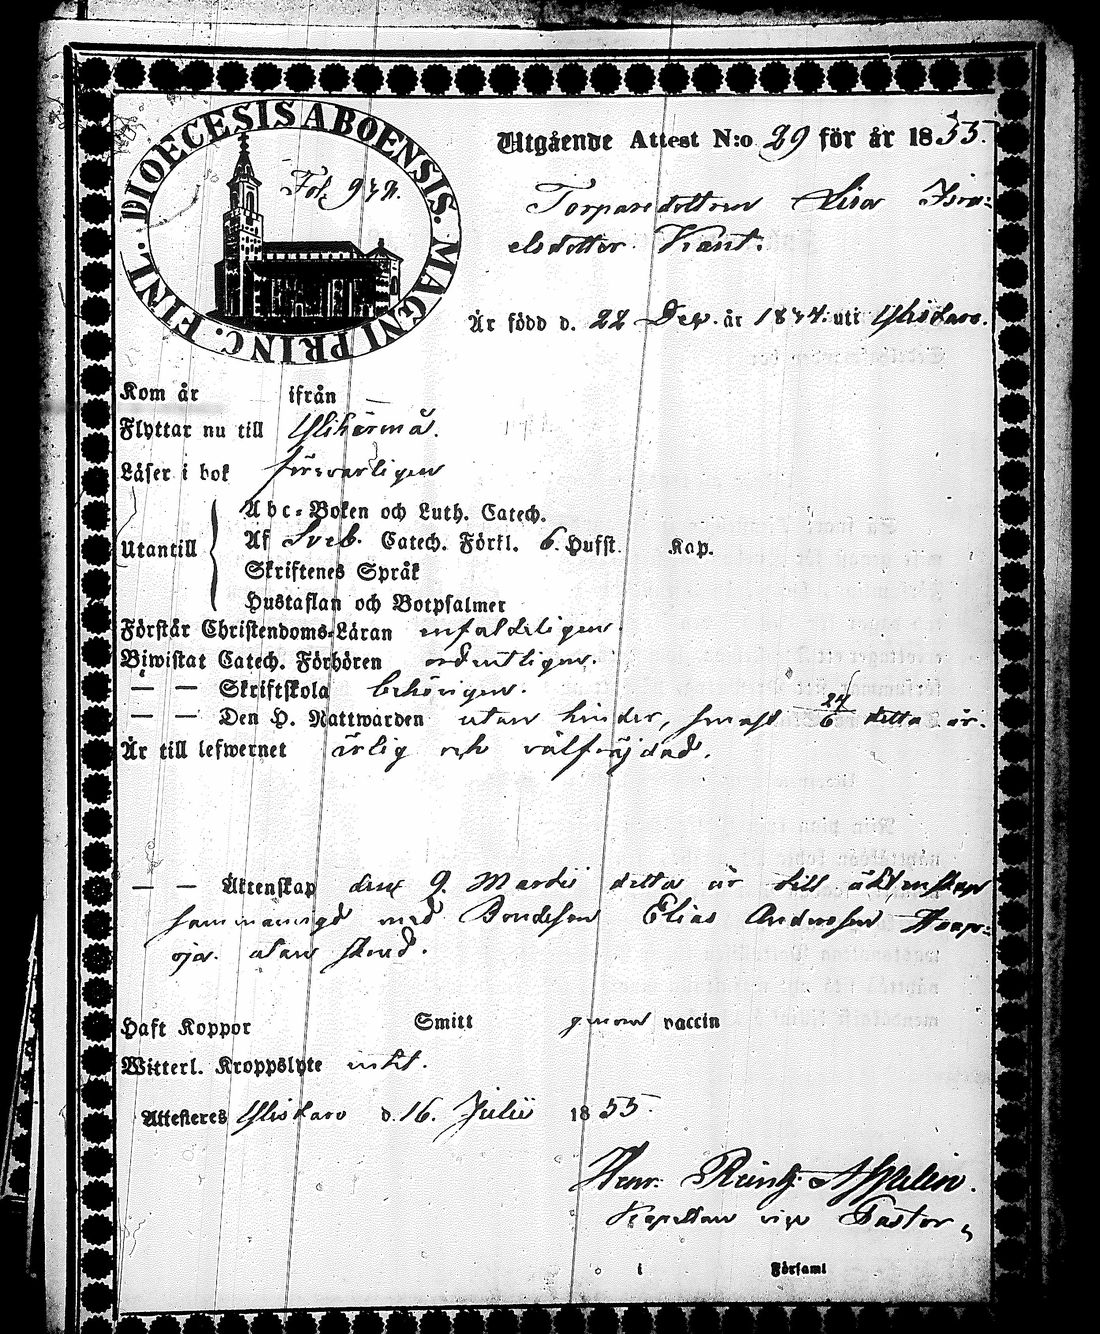 DIOECESIS ABOENSIS. MAGNI PRINC. FINL.
Fol. 942.
Utgående Attest N:o 29 för år 1855.
Torparedottren Lisa Isra-
elsdotter Kant.
Är född d. 22 Dec. år 1834. uti Ylistaro.
Kom år ifrån —
Flyttar nu till Ylihärmä.
Läser i bok försvarligen
Utantill
Abc-Boken och Luth. Catech.
Af Sveb. Catech. Förkl. 6. Hufst. Kap.
Skriftenes Språk
Hustaflan och Botpsalmer
Förstår Christendoms-Läran enfaldeligen.
Biwistat Catech. Förhören ordentligen.
— — Skriftskola behörigen.
— — Den H. Nattwarden utan hinder, senast 24/6 detta år.
Är till lefwernet ärlig och välfrejdad.
— — Äktenskap den 9. Martii detta år till äktenskap
sammanvigd med Bondeson Elias Andersson
utan stånd.
Haft Koppor Smitt genom vaccin
Witterl. Kroppslyte intet.
Attesteres Ylistaro d. 16. Julii 1855.
Henr. Reinh.
Kapellan vice Pastor
i Församl